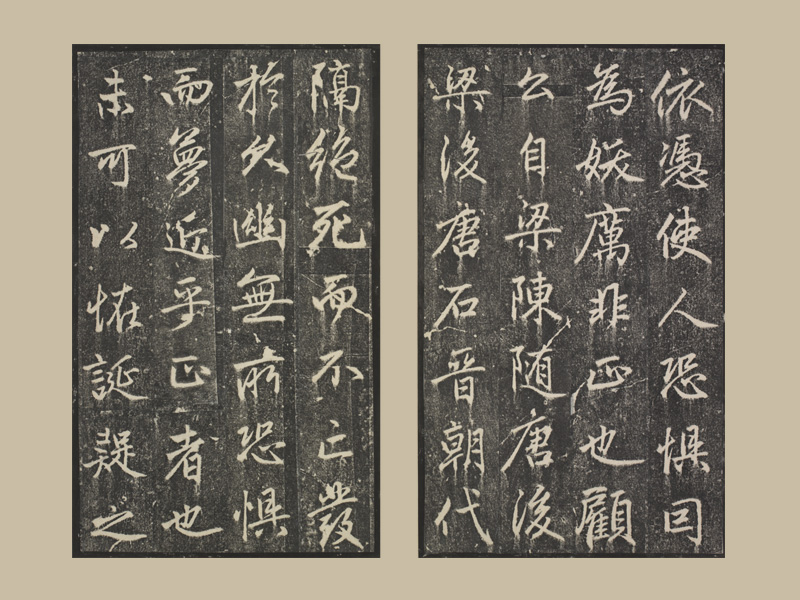 依憑使人恐惧囙
為妖厲非正也顧
公自梁陳随唐後
梁後唐石晋朝代
隔絶死而不亡發
於久幽無所恐惧
而夢近乎正者也
未可以恠誕疑之